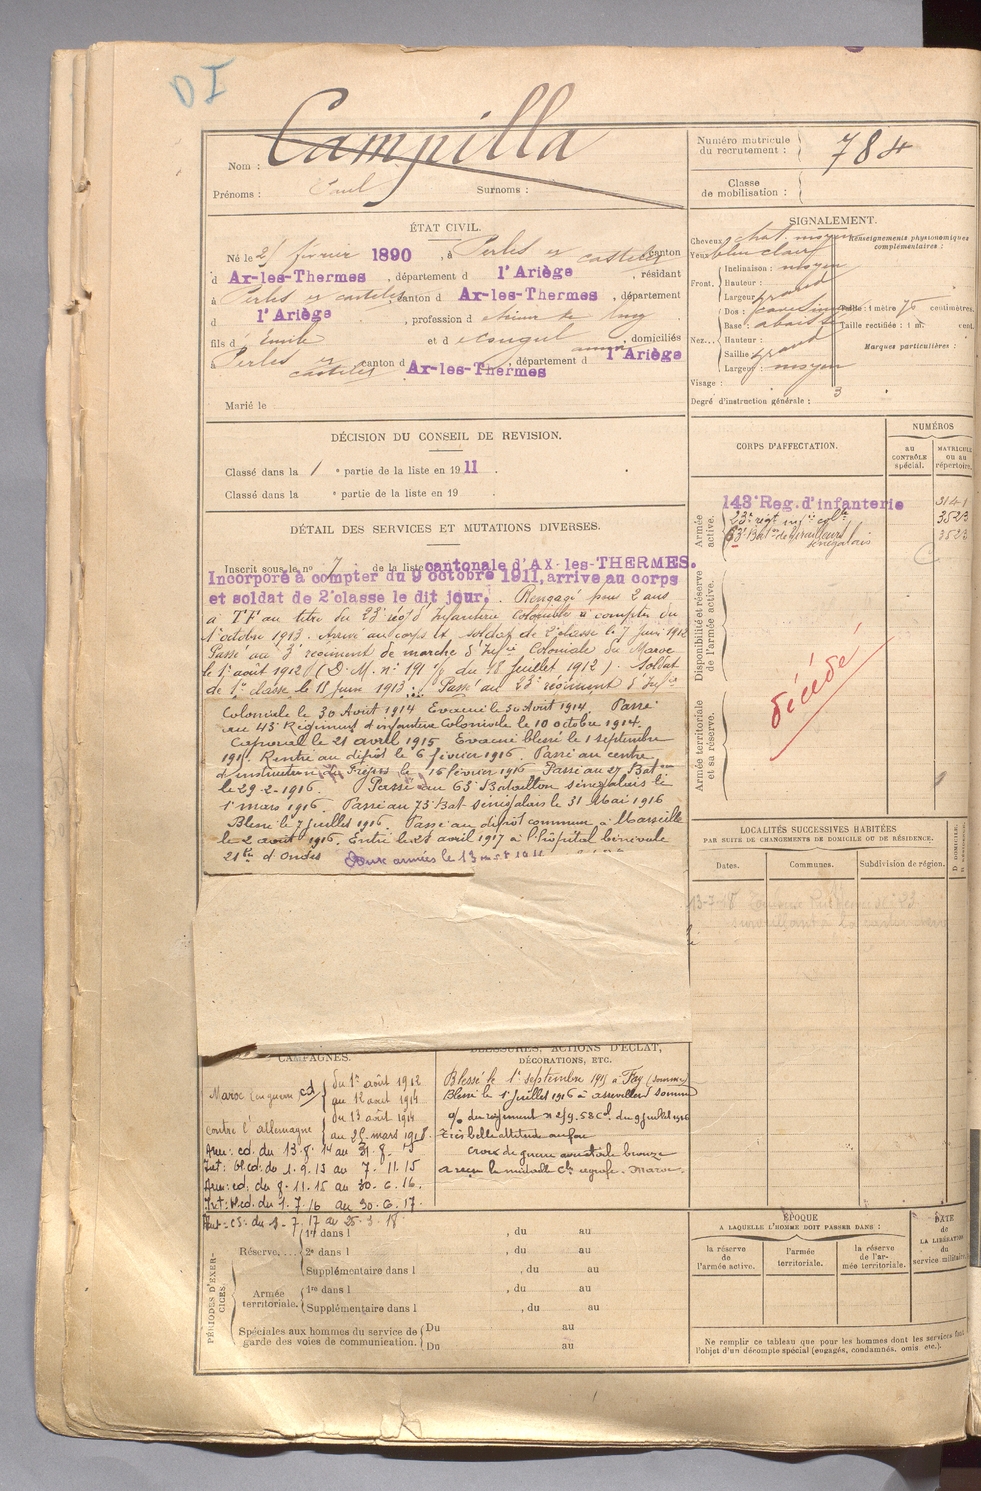 DI
Campilla
Nom :
Prénoms : Paul Surnoms :
Numéro matricule du recrutement : 784
Classe de mobilisation :
ÉTAT CIVIL.
Né le 25 février 1890, à Perles et castelet canton
d Ax-les-Thermes, département d l'Ariège, résidant
à Perles et castelet canton d Ax-les-Thermes, département
d l'Ariège, profession d
fils d Emile et d , domiciliés
à Perles et castelet canton d Ax-les-Thermes, département d l'Ariège
Marié le
SIGNALEMENT.
Cheveux chat. moyen
Yeux bleu clair
Renseignements physionomiques complémentaires :
Front. Inclinaison : moyen
Hauteur :
Largeur : grand
Nez. Dos :
Base : abaissé
Hauteur :
Saillie : grand
Largeur : moyen
Visage :
Taille : 1 mètre 70 centimètres.
Taille rectifiée : 1 m. cent.
Marques particulières :
Degré d'instruction générale : 3
DÉCISION DU CONSEIL DE REVISION.
Classé dans la 1 e partie de la liste en 1911.
Classé dans la e partie de la liste en 19 .
CORPS D'AFFECTATION.
NUMÉROS
AU CONTRÔLE spécial.
MATRICULE OU AU répertoire.
Armée active.
143e Reg. d'infanterie 3141
23e régt infie colle 3523
63e Baton de Tirailleurs sénégalais 3523
Disponibilité et réserve de l'armée active.
Armée territoriale et sa réserve.
décédé
DÉTAIL DES SERVICES ET MUTATIONS DIVERSES.
Inscrit sous le no 7 de la liste cantonale d'AX-les-THERMES.
Incorporé à compter du 9 octobre 1911, arrivé au corps
et soldat de 2e classe le dit jour. Rengagé pour 2 ans
à TF au titre du 23e régt d'Infanterie Coloniale à compter du
1er octobre 1913. Arrivé au corps et soldat de 2e classe le 7 Juin 1912
Passé au 3e régiment de marche d'Infie Coloniale du Maroc
le 1er août 1912 (D.M. no 191 du 18 Juillet 1912). Soldat
de 1re classe le 18 Juin 1913. Passé au 23e régiment d'Infie
Coloniale le 30 Août 1914 Evacué le 30 Août 1914. Passé
au 43e Régiment d'infanterie Coloniale le 10 octobre 1914.
Caporal le 21 avril 1915 Evacué blessé le 1 septembre
1915. Rentré au dépôt le 6 février 1916. Passé au centre
d'instruction de Fréjus le 16 février 1916 Passé au 27 Baton
le 29-2-1916. Passé au 63e Bataillon sénégalais le
1er mars 1916. Passé au 73 Bat Sénégalais le 31 Mai 1916
Blessé le 7 juillet 1916. Passé au dépôt commun à Marseille
le 2 août 1916. Entré le 25 avril 1917 à l'hôpital bénévole
21bis d'Ondes Aux armées le 13
LOCALITÉS SUCCESSIVES HABITÉES
PAR SUITE DE CHANGEMENTS DE DOMICILE OU DE RÉSIDENCE.
Dates.
Communes.
Subdivision de région.
D DOMICILE,
13-7-18
CAMPAGNES.
Maroc en guerre cd du 1er août 1912
au 12 août 1914
contre l'allemagne du 13 août 1914
au 25 mars 1918.
Arm: cd. du 13.8.14 au 31.8.15
Int: bl.cd. du 1.9.15 au 7.11.15
Arm: cd. du 8.11.15 au 30.6.16.
Int: bl.cd. du 1.7.16 au 30.6.17.
Int: cs. du 1.7.17 au 25.3.18.
BLESSURES, ACTIONS D'ÉCLAT, DÉCORATIONS, ETC.
Blessé le 1er septembre 1915 à Fay (Somme)
Blessé le 1er juillet 1916 à assevillers Somme
o/ du régiment no 219.58 Cl. du 9 juillet 1916
très belle attitude au feu
croix de guerre avec étoile bronze
a reçu la médaille Cle agrafe. Maroc.
PÉRIODES D'EXERCICES.
Réserve.... 1re dans l , du au
2e dans l , du au
Supplémentaire dans l , du au
Armée territoriale. 1re dans l , du au
Supplémentaire dans l , du au
Spéciales aux hommes du service de garde des voies de communication. Du au
Du au
ÉPOQUE
A LAQUELLE L'HOMME DOIT PASSER DANS :
la réserve de l'armée active.
l'armée territoriale.
la réserve de l'armée territoriale.
DATE de LA LIBÉRATION du service militaire.
Ne remplir ce tableau que pour les hommes dont les services font
l'objet d'un décompte spécial (engagés, condamnés, omis, etc.).